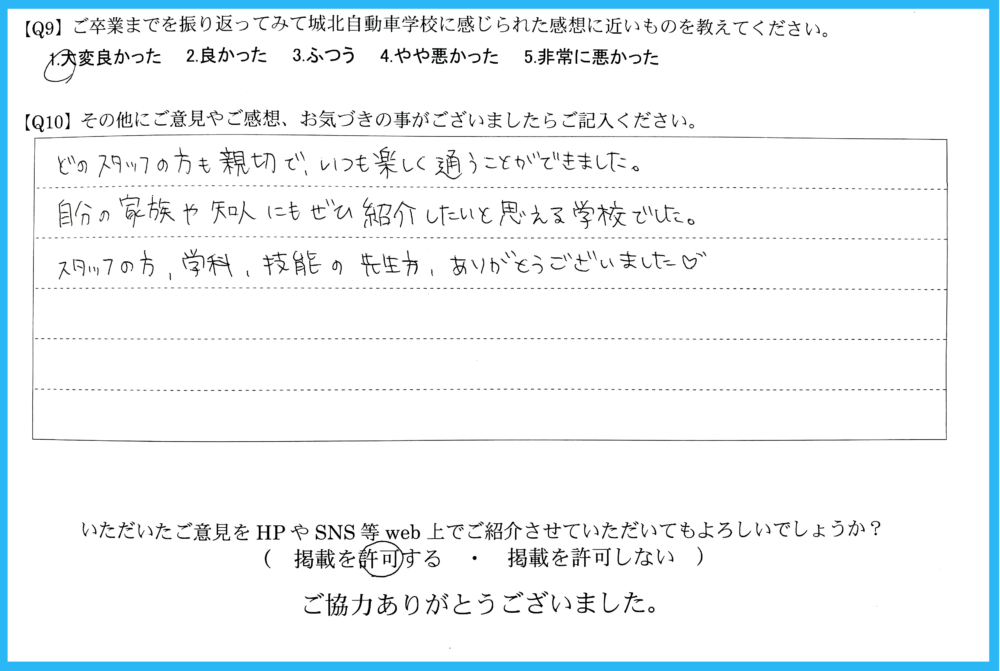 【Q9】ご卒業までを振り返ってみて城北自動車学校に感じられた感想に近いものを教えてください。
1.大変良かった 2.良かった 3.ふつう 4.やや悪かった 5.非常に悪かった
【Q10】その他にご意見やご感想、お気づきの事がございましたらご記入ください。
どのスタッフの方も親切で、いつも楽しく通うことができました。
自分の家族や知人にもぜひ紹介したいと思える学校でした。
スタッフの方、学科、技能の先生方、ありがとうございました♡
いただいたご意見をHPやSNS等web上でご紹介させていただいてもよろしいでしょうか？
（ 掲載を許可する ・ 掲載を許可しない ）
ご協力ありがとうございました。